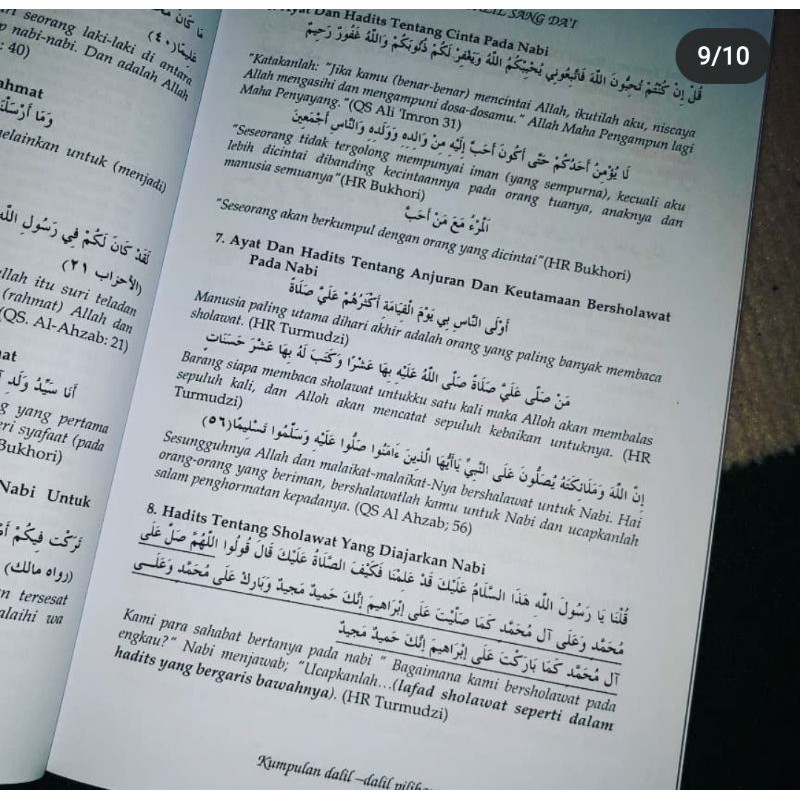 مَا كَانَ
seorang laki-laki di antara
عَلِيمًا (٤٠)
nabi-nabi. Dan adalah Allah
: 40)
ahmat
وَمَا أَرْسَلْنَا
melainkan untuk (menjadi)
لَقَدْ كَانَ لَكُمْ فِي رَسُولِ اللَّهِ
(الأحزاب ٢١)
llah itu suri teladan
(rahmat) Allah dan
(QS. Al-Ahzab: 21)
at
أَنَا سَيِّدُ وَلَدِ
g yang pertama
eri syafaat (pada
Bukhori)
Nabi Untuk
تَرَكْتُ فِيكُمْ
(رواه مالك)
n tersesat
alaihi wa
SANG DA'I
Ayat Dan Hadits Tentang Cinta Pada Nabi
قُلْ إِنْ كُنْتُمْ تُحِبُّونَ اللَّهَ فَاتَّبِعُونِي يُحْبِبْكُمُ اللَّهُ وَيَغْفِرْ لَكُمْ ذُنُوبَكُمْ وَاللَّهُ غَفُورٌ رَحِيمٌ
9/10
"Katakanlah: "Jika kamu (benar-benar) mencintai Allah, ikutilah aku, niscaya
Allah mengasihi dan mengampuni dosa-dosamu." Allah Maha Pengampun lagi
Maha Penyayang."(QS Ali 'Imron 31)
لَا يُؤْمِنُ أَحَدُكُمْ حَتَّى أَكُونَ أَحَبَّ إِلَيْهِ مِنْ وَالِدِهِ وَوَلَدِهِ وَالنَّاسِ أَجْمَعِينَ
"Seseorang tidak tergolong mempunyai iman (yang sempurna), kecuali aku
lebih dicintai dibanding kecintaannya pada orang tuanya, anaknya dan
manusia semuanya"(HR Bukhori)
اَلْمَرْءُ مَعَ مَنْ أَحَبَّ
"Seseorang akan berkumpul dengan orang yang dicintai"(HR Bukhori)
7. Ayat Dan Hadits Tentang Anjuran Dan Keutamaan Bersholawat
Pada Nabi
أَوْلَى النَّاسِ بِي يَوْمَ الْقِيَامَةِ أَكْثَرُهُمْ عَلَيَّ صَلَاةً
Manusia paling utama dihari akhir adalah orang yang paling banyak membaca
sholawat. (HR Turmudzi)
مَنْ صَلَّى عَلَيَّ صَلَاةً صَلَّى اللَّهُ عَلَيْهِ بِهَا عَشْرًا وَكَتَبَ لَهُ بِهَا عَشْرَ حَسَنَاتٍ
Barang siapa membaca sholawat untukku satu kali maka Alloh akan membalas
sepuluh kali, dan Alloh akan mencatat sepuluh kebaikan untuknya. (HR
Turmudzi)
إِنَّ اللَّهَ وَمَلَائِكَتَهُ يُصَلُّونَ عَلَى النَّبِيِّ يَاأَيُّهَا الَّذِينَ ءَامَنُوا صَلُّوا عَلَيْهِ وَسَلِّمُوا تَسْلِيمًا (٥٦)
Sesungguhnya Allah dan malaikat-malaikat-Nya bershalawat untuk Nabi. Hai
orang-orang yang beriman, bershalawatlah kamu untuk Nabi dan ucapkanlah
salam penghormatan kepadanya. (QS Al Ahzab; 56)
8. Hadits Tentang Sholawat Yang Diajarkan Nabi
قُلْنَا يَا رَسُولَ اللَّهِ هَذَا السَّلَامُ عَلَيْكَ قَدْ عَلِمْنَا فَكَيْفَ الصَّلَاةُ عَلَيْكَ قَالَ قُولُوا اللَّهُمَّ صَلِّ عَلَى
مُحَمَّدٍ وَعَلَى آلِ مُحَمَّدٍ كَمَا صَلَّيْتَ عَلَى إِبْرَاهِيمَ إِنَّكَ حَمِيدٌ مَجِيدٌ وَبَارِكْ عَلَى مُحَمَّدٍ وَعَلَى
آلِ مُحَمَّدٍ كَمَا بَارَكْتَ عَلَى إِبْرَاهِيمَ إِنَّكَ حَمِيدٌ مَجِيدٌ
Kami para sahabat bertanya pada nabi " Bagaimana kami bersholawat pada
engkau?" Nabi menjawab; "Ucapkanlah...(lafad sholawat seperti dalam
hadits yang bergaris bawahnya). (HR Turmudzi)
Kumpulan dalil –dalil